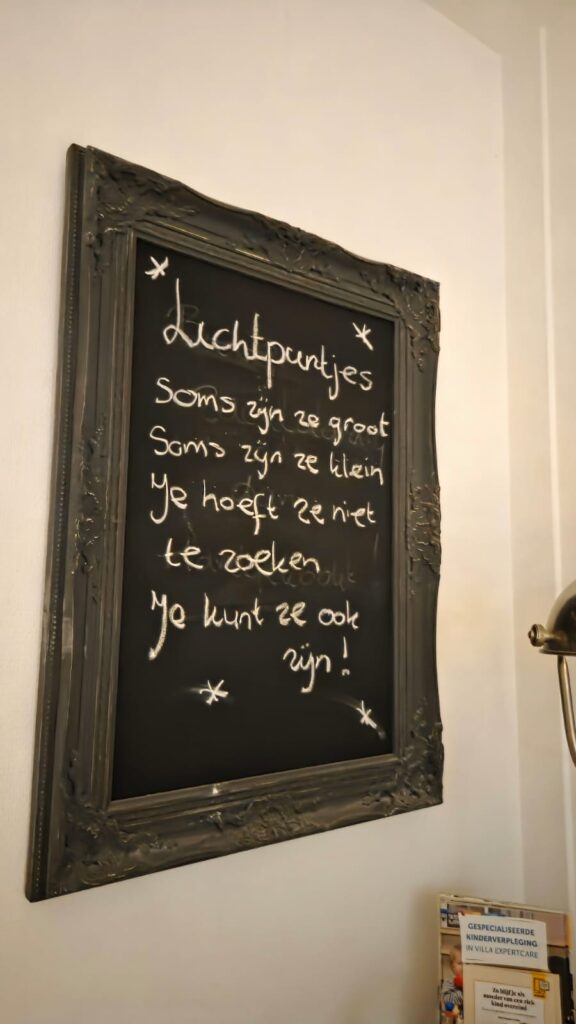 Lichtpuntjes
Soms zijn ze groot
Soms zijn ze klein
Je hoeft ze niet
te zoeken
Je kunt ze ook
zijn!
GESPECIALISEERDE
KINDERVERPLEGING
IN VILLA EXPERTCARE
Zo blijf je als
moeder van een ziek
kind overeind